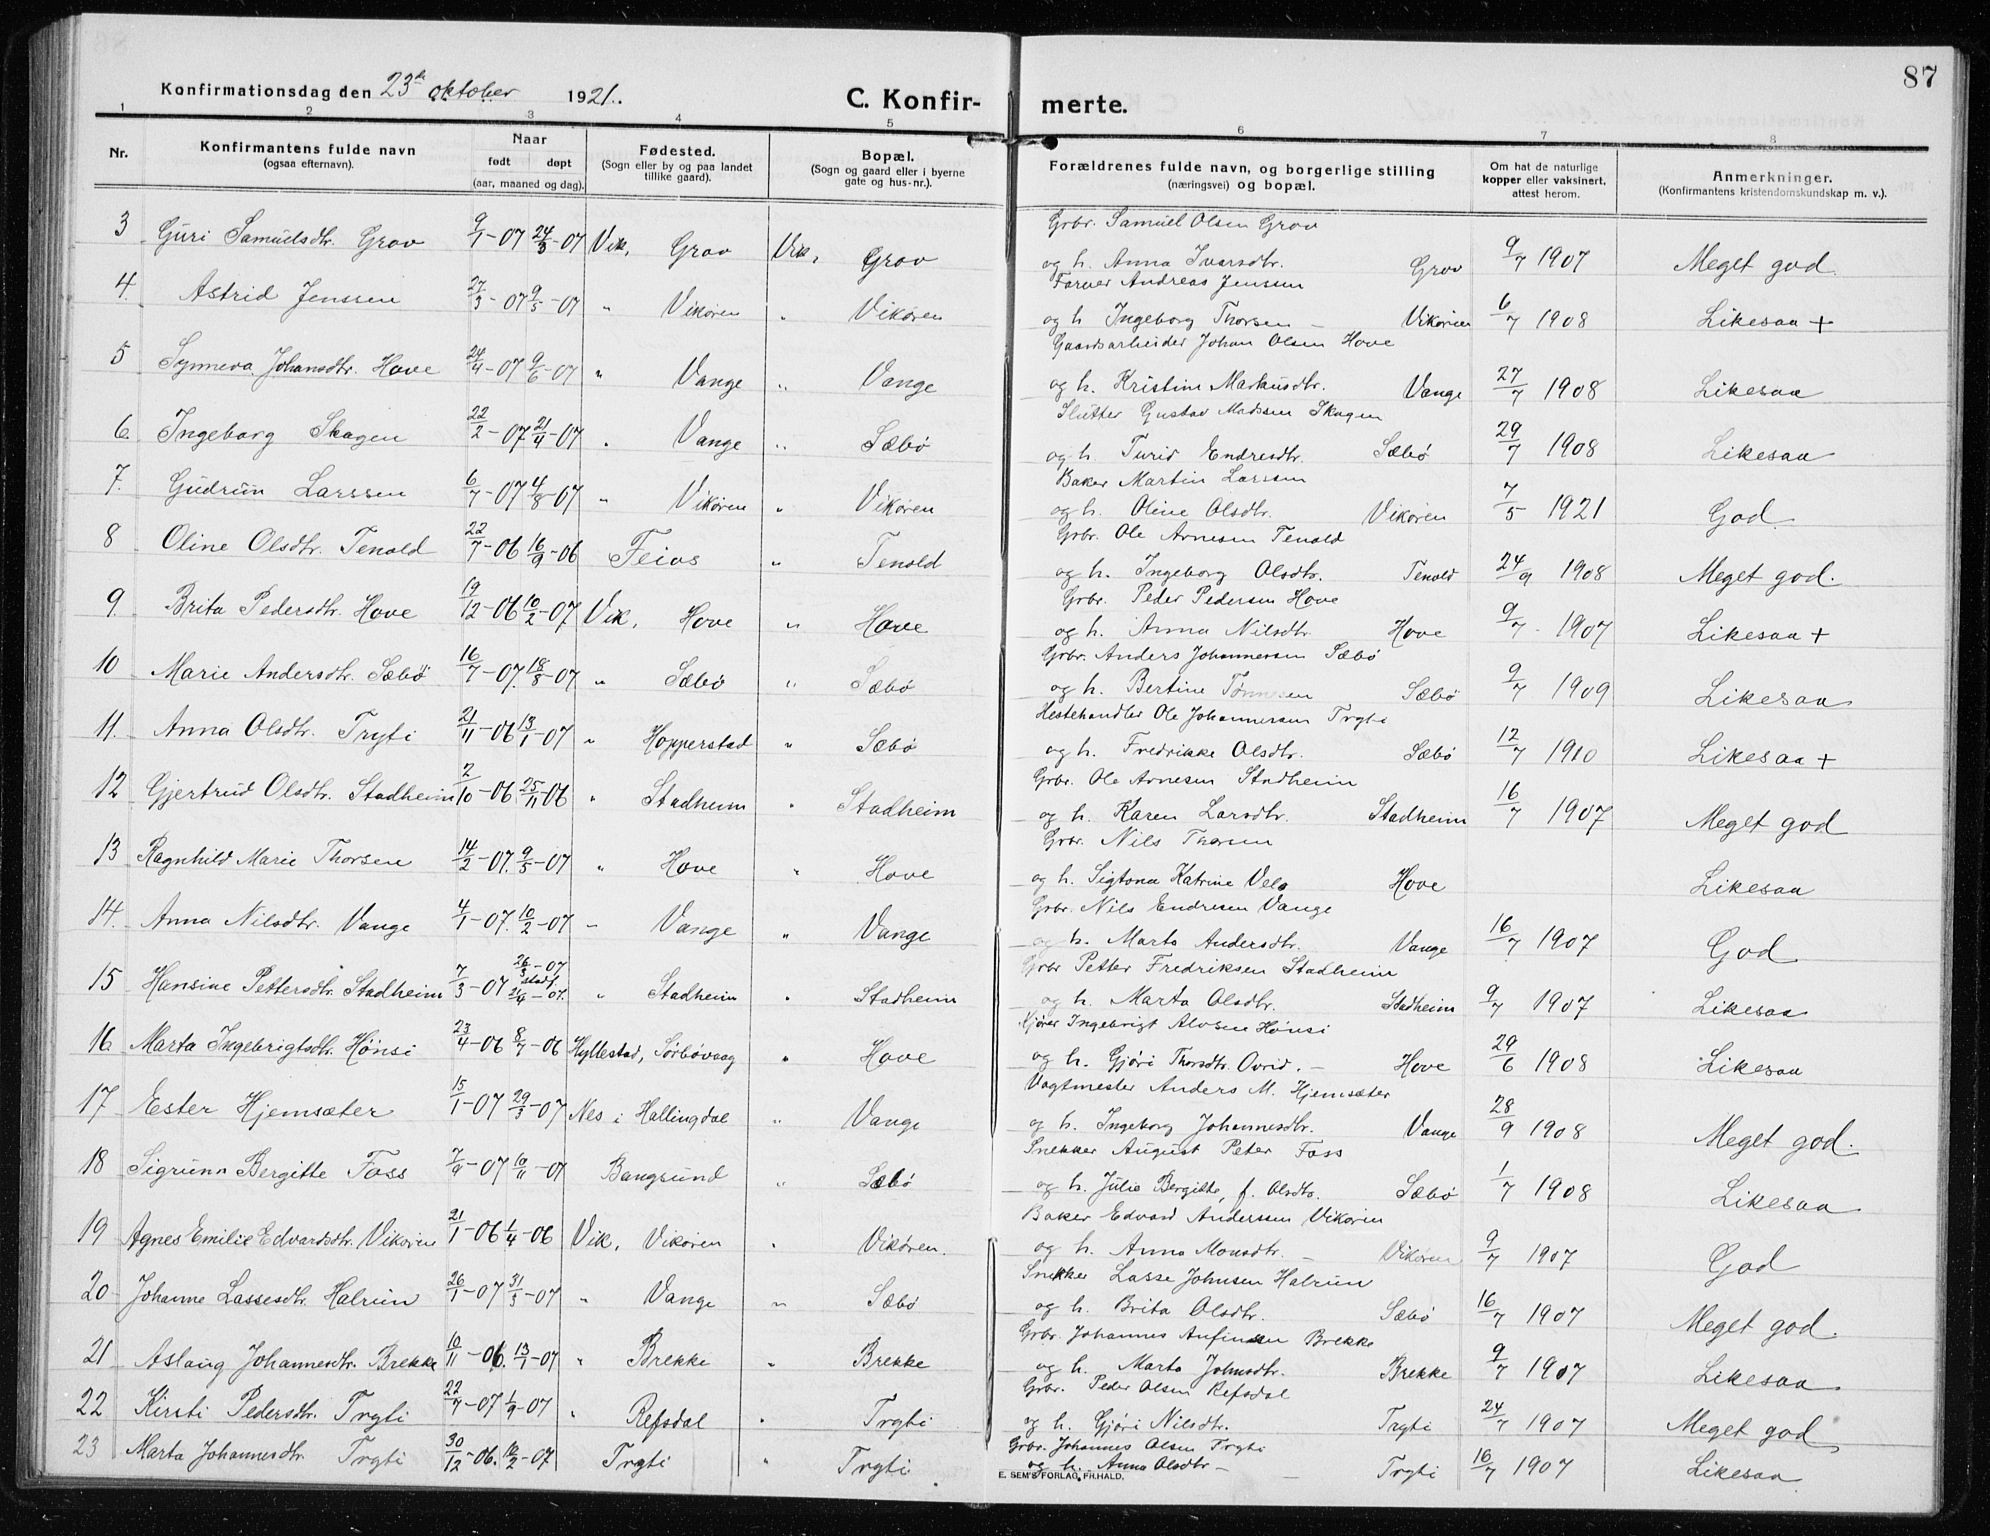 87
Konfirmationsdag den 23de oktober 1921.
C. Konfir- merte.
1 2 3 4 5 6 7 8
Nr. Konfirmantens fulde navn (ogsaa efternavn). Naar født døpt (aar, maaned og dag). Fødested. (Sogn eller by og paa landet tillike gaard). Bopæl. (Sogn og gaard eller i byerne gate og hus-nr.). Forældrenes fulde navn, og borgerlige stilling (næringsvei) og bopæl. Om hat de naturlige kopper eller vaksinert, attest herom. Anmerkninger. (Konfirmantens kristendomskundskap m. v.).
Grbr. Samuel Olsen Grov
3 Guri Samuelsdtr. Grov 9/1-07 24/3-07 Vik, Grov Vik, Grov og h. Anna Ivarsdtr. Grov 9/7 1907 Meget god.
Farver Andreas Jenssen
4. Astrid Jenssen 27/3-07 9/5-07 " Vikøren " Vikøren og h. Ingeborg Thorsen – Vikøren 6/7 1908 Likesaa +
Gaardsarbeider Johan Olsen Hove
5 Synneva Johansdtr. Hove 24/4-07 9/6-07 " Vange " Vange og h. Kristine Markusdtr. Vange 27/7 1908 Likesaa
Slutter Gustav Madssen Skagen
6. Ingeborg Skagen 22/2-07 21/4-07 " Vange " Sæbø og h. Turid Endresdtr. Sæbø 29/7 1908 Likesaa
Baker Martin Larssen
7. Gudrun Larssen 6/7-07 4/8-07 " Vikøren " Vikøren og h. Oline Olsdtr. Vikøren 7/5 1921 God
Grbr. Ole Arnesen Tenold
8 Oline Olsdtr. Tenold 22/7-06 16/9-06 Feios " Tenold og h. Ingeborg Olsdtr. Tenold 24/9 1908 Meget god.
Grbr. Peder Pedersen Hove
9. Brita Pedersdtr. Hove 19/12-06 10/2-07 Vik, Hove " Hove og h. Anna Nilsdtr. Hove 9/7 1907 Likesaa +
Grbr. Anders Johannessen Sæbø
10 Marie Andersdtr. Sæbø 16/7-07. 18/8-07 " Sæbø " Sæbø og h. Bertine Tønnesen Sæbø 9/7 1909 Likesaa
Hestehandler Ole Johannessen Tryti
11. Anna Olsdtr. Tryti 21/11-06 13/1-07 " Hopperstad " Sæbø og h. Fredrikke Olsdtr. Sæbø 12/7 1910 Likesaa +
Grbr. Ole Arnesen Stadheim
12 Gjertrud Olsdtr. Stadheim 2/10-06 25/11-06 " Stadheim " Stadheim og h. Karen Larsdtr. Stadheim 16/7 1907 Meget god
Grbr. Nils Thorsen
13 Ragnhild Marie Thorsen 14/2-07. 9/5-07 " Hove " Hove og h. Sigtona Katrine Hove Likesaa
Grbr. Nils Endresen Vange
14. Anna Nilsdtr. Vange 4/1-07. 10/2-07 " Vange " Vange og h. Marta Andersdtr. Vange 16/7 1907 God
Grbr Petter Fredriksen Stadheim
15 Hansine Pettersdtr. Stadheim 7/3-07 26/3-07 stadf. 21/4-07. " Stadheim " Stadheim og h. Marta Olsdtr. Stadheim 9/7 1907 Likesaa
Kjører Ingebrigt Alvsen Hønsi
16. Marta Ingebrigtsdtr. Hønsi 23/4-06 8/7-06 Hyllestad, Sørbøvaag " Hove og h. Gjøri Thorsdtr. Ovrid. – Hove 29/6 1908 Likesaa
Vagtmester Anders M. Hjemsæter
17 Ester Hjemsæter 15/1-07 29/3-07 Nes i Hallingdal " Vange og h. Ingeborg Johannesdtr. Vange 28/9 1908 Meget god.
Snekker August Peter Foss
18 Sigrunn Bergitte Foss 7/9-07 10/11-07 Bangsund " Sæbø og h. Julie Bergitte, f. Olsdtr. Sæbø 1/7 1908 Likesaa
Baker Edvard Anderssen Vikøren
19 Agnes Emilie Edvardsdtr. Vikøren 21/1-06 1/4-06 Vik, Vikøren " Vikøren. og h. Anna Monsdtr. – Vikøren 9/7 1907 God
Snekker Lasse Johnsen Halrun
20 Johanne Lassesdtr. Halrun 26/1-07 31/3-07 " Vange " Sæbø og h. Brita Olsdtr. Sæbø 16/7 1907 Meget god.
Grbr. Johannes Anfinsen Brekke
21 Aslaug Johannesdtr. Brekke 10/11-06. 13/1-07 " Brekke " Brekke og h. Marta Johnsdtr. Brekke 9/7 1907 Likesaa
Grbr. Peder Olsen Refsdal
22 Kirsti Pedersdtr. Tryti 22/7-07 1/9-07 " Refsdal " Tryti og h. Gjøri Nilsdtr. Tryti 24/7 1907 Meget god
Grbr. Johannes Olsen Tryti
23 Marta Johannesdtr. Tryti 30/12-06. 10/2-07 Tryti " Tryti og h. Anna Olsdtr – – Tryti 16/7 1907 Likesaa
E. SEM'S FORLAG, FR.HALD.